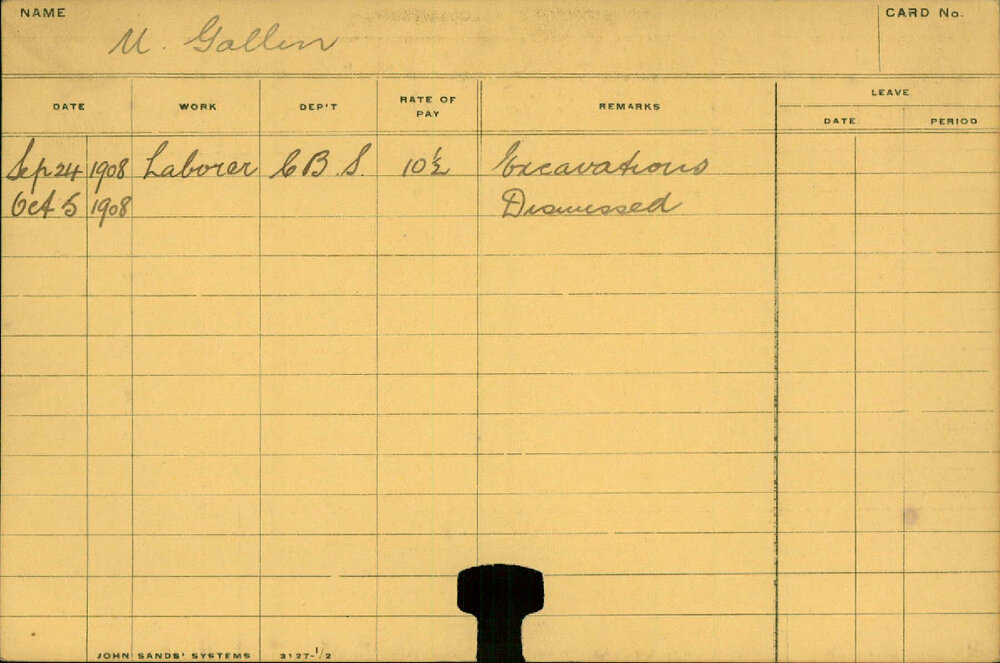 NAME M. Gallen CARD No.
DATE WORK DEP'T RATE OF PAY REMARKS LEAVE
DATE PERIOD
Sep 24 1908 Laborer C B S. 10 1/2 Excavations
Oct 5 1908 Dismissed
JOHN SANDS' SYSTEMS 3127-1/2